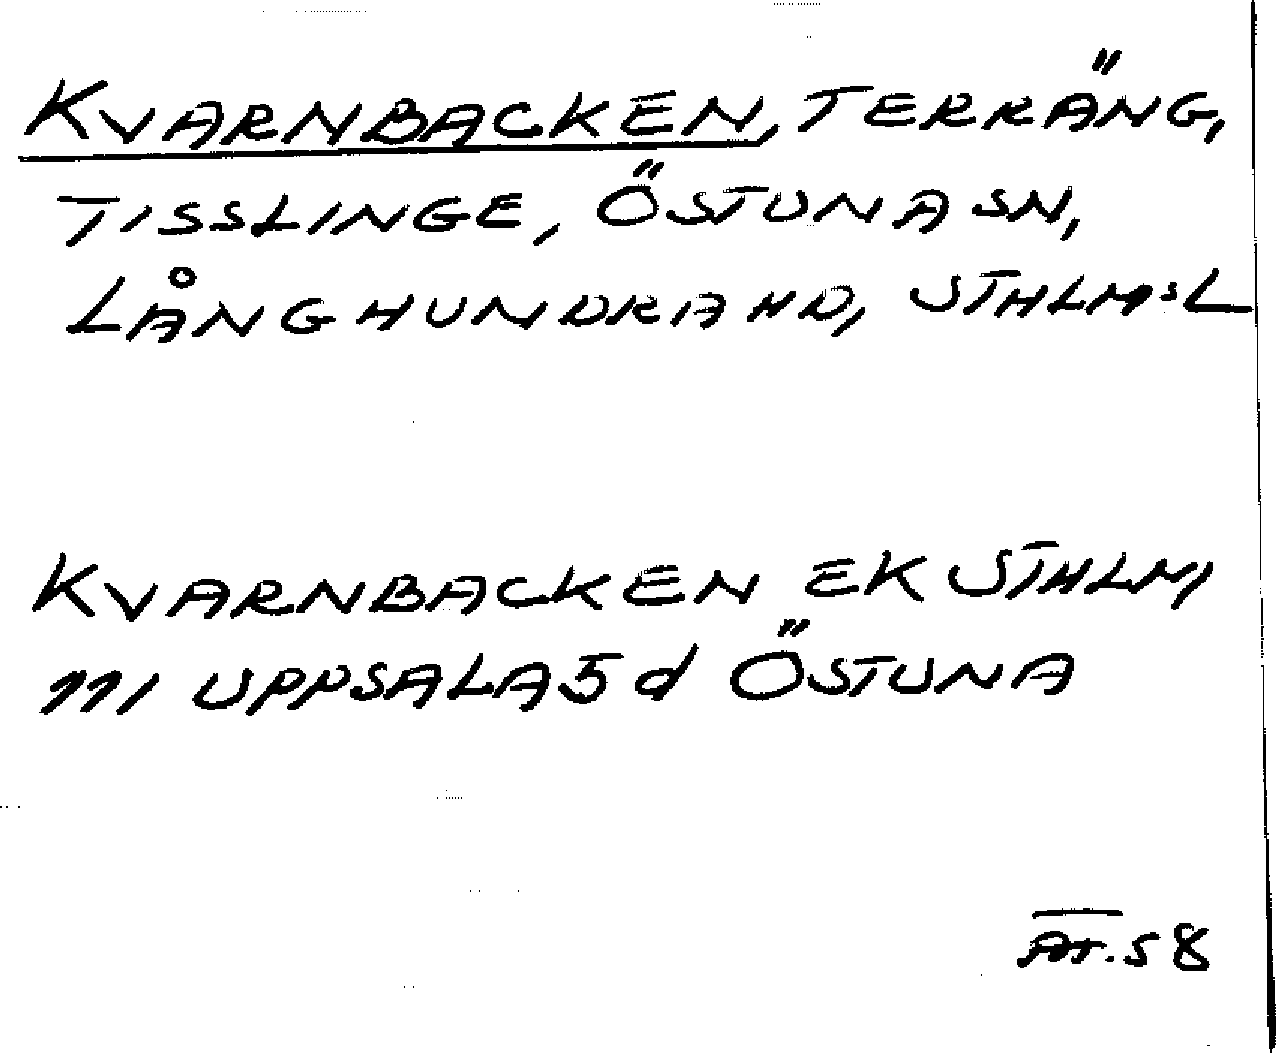 KVARNBACKEN, TERRÄNG,
TISSLINGE, ÖSTUNA SN,
LÅNGHUNDRA HD, STHLMS L
KVARNBACKEN EK STHLM,
111 UPPSALA 5 d ÖSTUNA
AT. 58